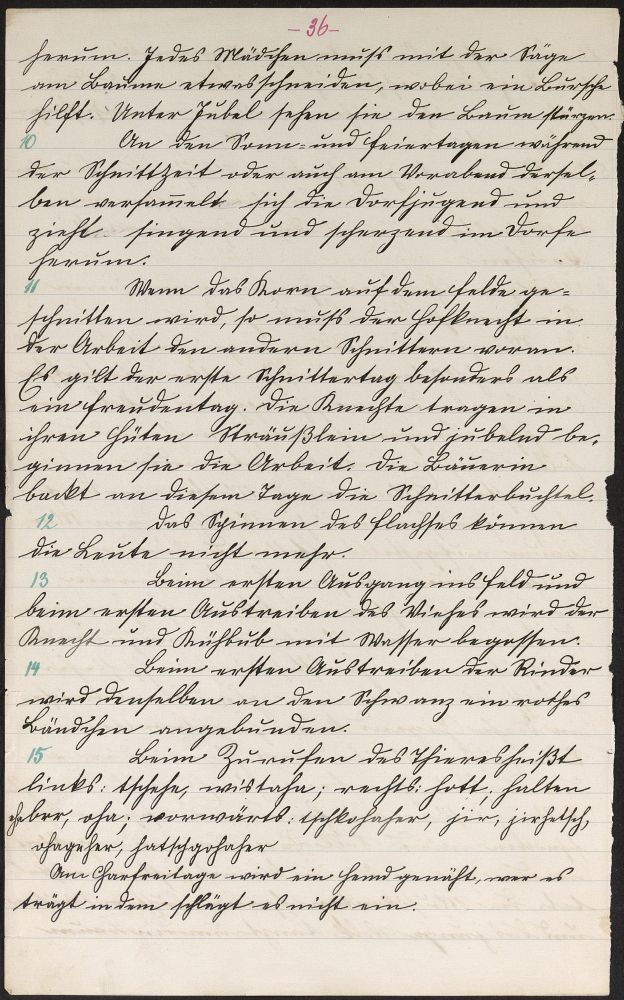 - 36 -
herum. Jedes Mädchen muß mit der Säge
am Baume etwas schneiden, wobei ein Bursche
hilft. Unter Jubel sehen sie den Baum stürzen.
10 An den Sonn- und Feiertagen während
der Schnittzeit oder auch am Vorabend dersel-
ben versam̅elt sich die Dorfjugend und
zieht singend und scherzend im Dorfe
herum.
11 Wenn das Korn auf dem Felde ge=
schnitten wird, so muß der Hofknecht in
der Arbeit den andern Schnittern voran.
Es gilt der erste Schnittertag besonders als
ein Freudentag. Die Knechte tragen in
ihren Hüten Sträußlein und jubelnd be-
ginnen sie die Arbeit. Die Bäuerin
backt an diesem Tage die Schnitterbuchtel.
12 Das Spinnen des Flachses können
die Leute nicht mehr.
13 Beim ersten Ausgang ins Feld und
beim ersten Austreiben des Viehes wird der
Knecht und Kühbub mit Wasser begossen.
14 Beim ersten Austreiben der Rinder
wird denselben an den Schwanz ein rothes
Bändchen angebunden.
15 Beim Zurufen des Thieres heißt
links: tschehe, wistaha; rechts: hott; halten
ehe brr, oha; vorwärts: tschkohaher, jir, jirhetsch,
ohageher, hatschgohaher
Am Charfreitage wird ein Hemd genäht, wer es
trägt in dem schlägt es nicht ein.